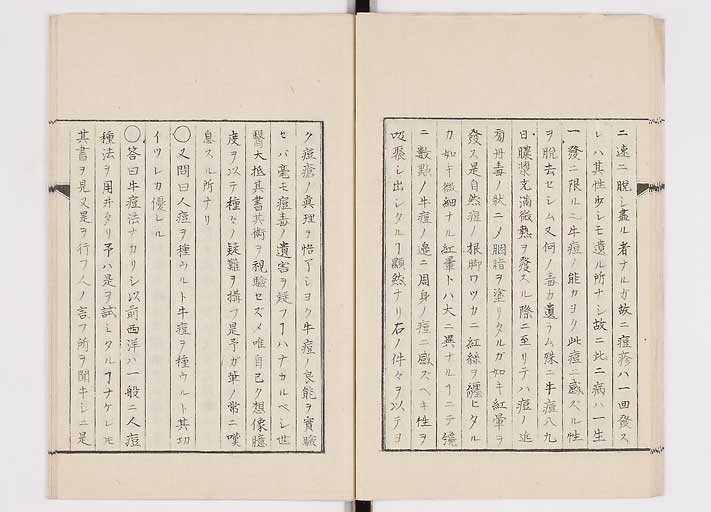 ニ速ニ脱シ盡ル者ナルガ故ニ痘疹ハ一回發ス
レハ其性少シモ遺ル所ナシ故ニ此二病ハ一生
一發ニ限ル牛痘ノ能カヨク此痘ニ感ズル性
ヲ脱去セシム又何ノ毒カ遺ラム殊ニ牛痘八九
日膿漿充滿微熱ヲ發スル際ニ至リテハ痘ノ近
匐丹毒ノ狀ニノ臙脂ヲ塗リタルガ如キ紅暈ヲ
發ス是自然痘ノ根脚ワツカニ紅絲ヲ纏ヒタル
カ如キ微細ナル紅暈トハ大ニ異ナルニテ僥
ニ數顆ノ牛痘ノ邊ニ周身ノ痘ニ感ズヘキ性ヲ
吸聚シ出シタルヿ顯然ナリ右ノ件々ヲ以テヨ
ク痘瘡ノ真理ヲ悟了シヨク牛痘ノ良能ヲ實驗
セバ毫モ痘毒ノ遺害ヲ疑フヿハナカルベシ世
醫大抵其書其術ヲ視驗セズメ唯自己ク想像臆
度ヲ以テ種々ノ疑難ヲ搆フ是予ガ華ノ常ニ嘆
息スル所ナリ
○又問曰人痘ヲ種ウルト牛痘ヲ種ウルト其功
イツレカ優レル
○答曰牛痘法ナカリシ以前西洋ハ一般ニ人痘
種法ヲ用井タリ予ハ是ヲ試シタルヿナケレモ
其書ヲ見又是ヲ行フ人ノ言フ所ヲ聞キシニ是